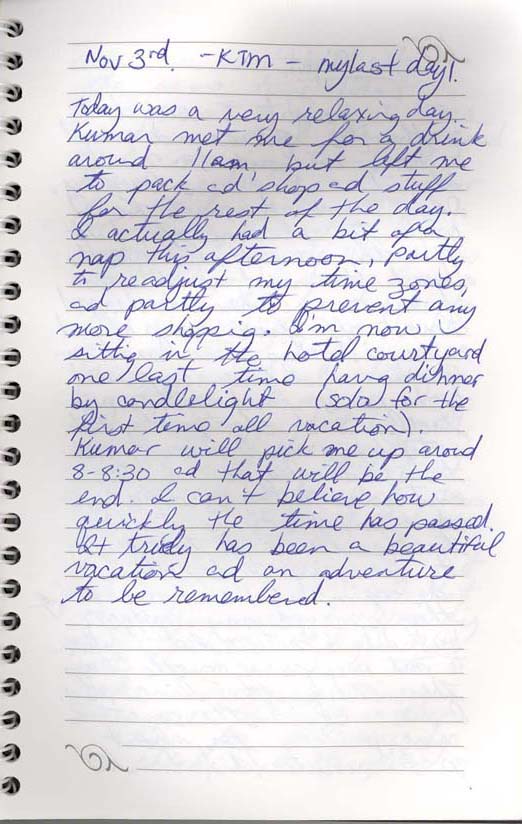 Nov 3rd. - KTM - my last day!
Today was a very relaxing day.
Kumar met me for a drink
around 11am but left me
to pack ad shop ad stuff
for the rest of the day.
I actually had a bit of a
nap this afternoon, partly
to readjust my time zones,
ad partly to prevent any
more shoppig. I'm now
sittig in the hotel courtyard
one last time havg dinner
by candlelight (solo for the
first time all vacation).
Kumar will pick me up aroud
8-8:30 ad that will be the
end. I can't believe how
quickly the time has passed.
It truly has been a beautiful
vacation ad an adventure
to be remembered.